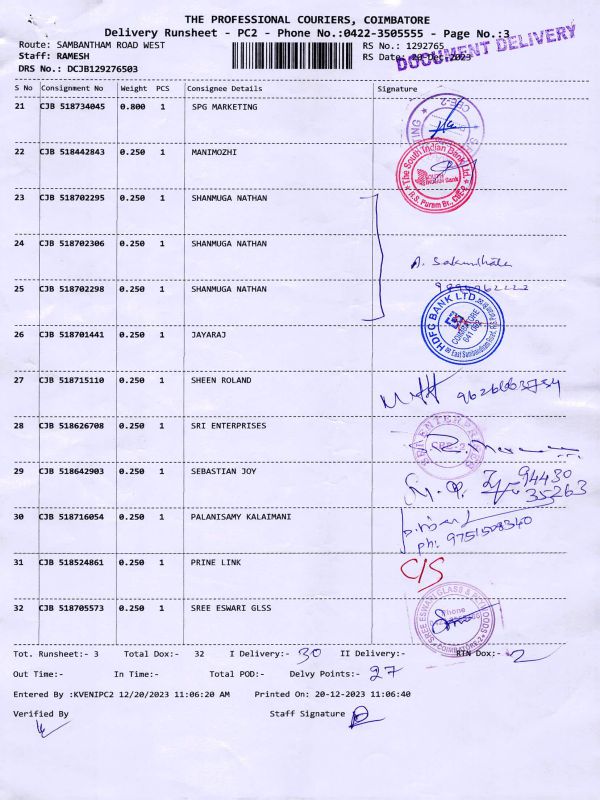 THE PROFESSIONAL COURIERS, COIMBATORE
Delivery Runsheet - PC2 - Phone No.:0422-3505555 - Page No.:3
DOCUMENT DELIVERY
Route: SAMBANTHAM ROAD WEST RS No.: 1292765
Staff: RAMESH RS Date: 20-Dec-2023
DRS No.: DCJB129276503
S No Consignment No Weight PCS Consignee Details Signature
21 CJB 518734045 0.800 1 SPG MARKETING
22 CJB 518442843 0.250 1 MANIMOZHI
The South Indian Bank Ltd.
R.S. Puram Br., CBE-2
23 CJB 518702295 0.250 1 SHANMUGA NATHAN
24 CJB 518702306 0.250 1 SHANMUGA NATHAN
A. Sakunthala
25 CJB 518702298 0.250 1 SHANMUGA NATHAN
HDFC BANK LTD
COIMBATORE
641 002
26 CJB 518701441 0.250 1 JAYARAJ
27 CJB 518715110 0.250 1 SHEEN ROLAND
28 CJB 518626708 0.250 1 SRI ENTERPRISES
29 CJB 518642903 0.250 1 SEBASTIAN JOY
94430
35263
30 CJB 518716054 0.250 1 PALANISAMY KALAIMANI
ph: 9751508340
31 CJB 518524861 0.250 1 PRINE LINK C/S
32 CJB 518705573 0.250 1 SREE ESWARI GLSS
SREE ESWARI GLASS &
Phone
COIMBATORE-2
Tot. Runsheet:- 3 Total Dox:- 32 I Delivery:- 30 II Delivery:- RTN Dox:- 2
Out Time:- In Time:- Total POD:- Delvy Points:- 27
Entered By :KVENIPC2 12/20/2023 11:06:20 AM Printed On: 20-12-2023 11:06:40
Verified By Staff Signature